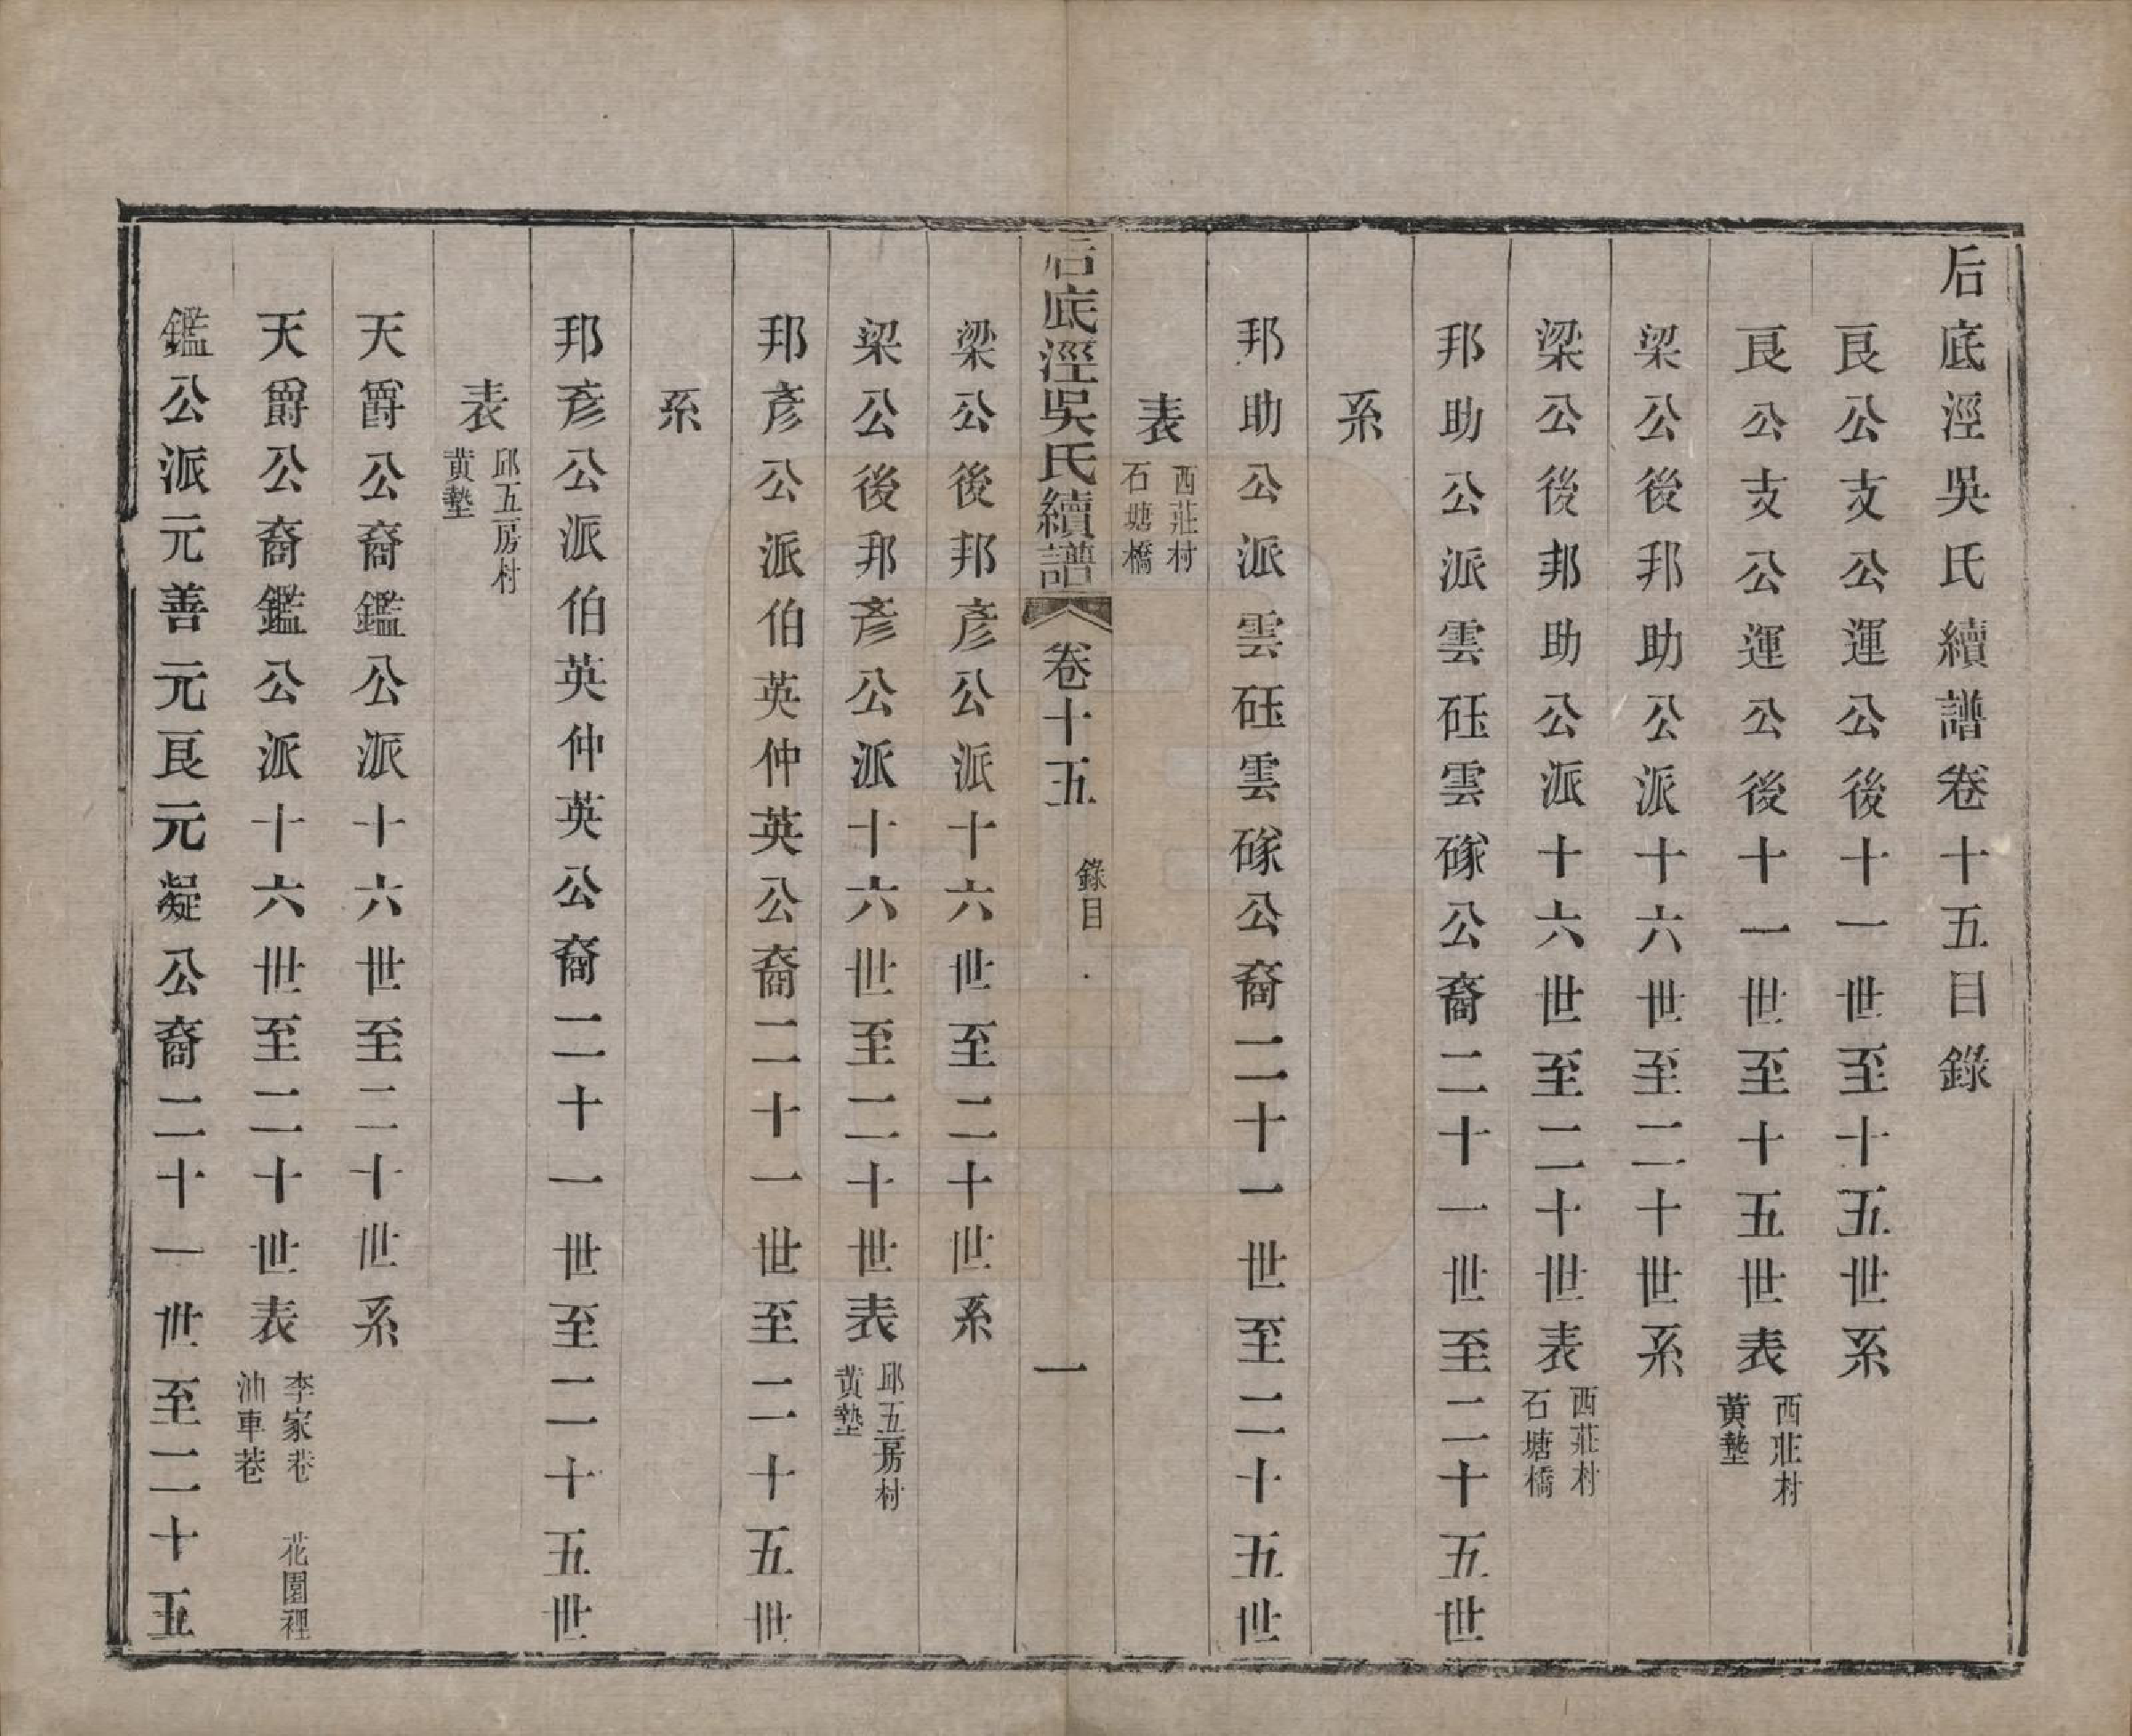 后底涇吳氏續譜卷十五目錄
良公支公運公後十一世至十五世系
良公支公運公後十一世至十五世表 西莊村 黄墊
梁公後邦助公派十六世至二十世系
梁公後邦助公派十六世至二十世表 西莊村 石塘橋
邦助公派雲砡雲磙公裔二十一世至二十五世
系
邦助公派雲砡雲磙公裔二十一世至二十五世
表 西莊村 石塘橋
后底涇吳氏續譜 卷十五 錄目 一
梁公後邦彥公派十六世至二十世系
梁公後邦彥公派十六世至二十世表 邱五房村 黄墊
邦彥公派伯英仲英公裔二十一世至二十五世
系
邦彥公派伯英仲英公裔二十一世至二十五世
表 邱五房村 黄墊
天爵公裔鑑公派十六世至二十世系
天爵公裔鑑公派十六世至二十世表 李家巷 花園裡 油車巷
鑑公派元善元良元凝公裔二十一世至二十五